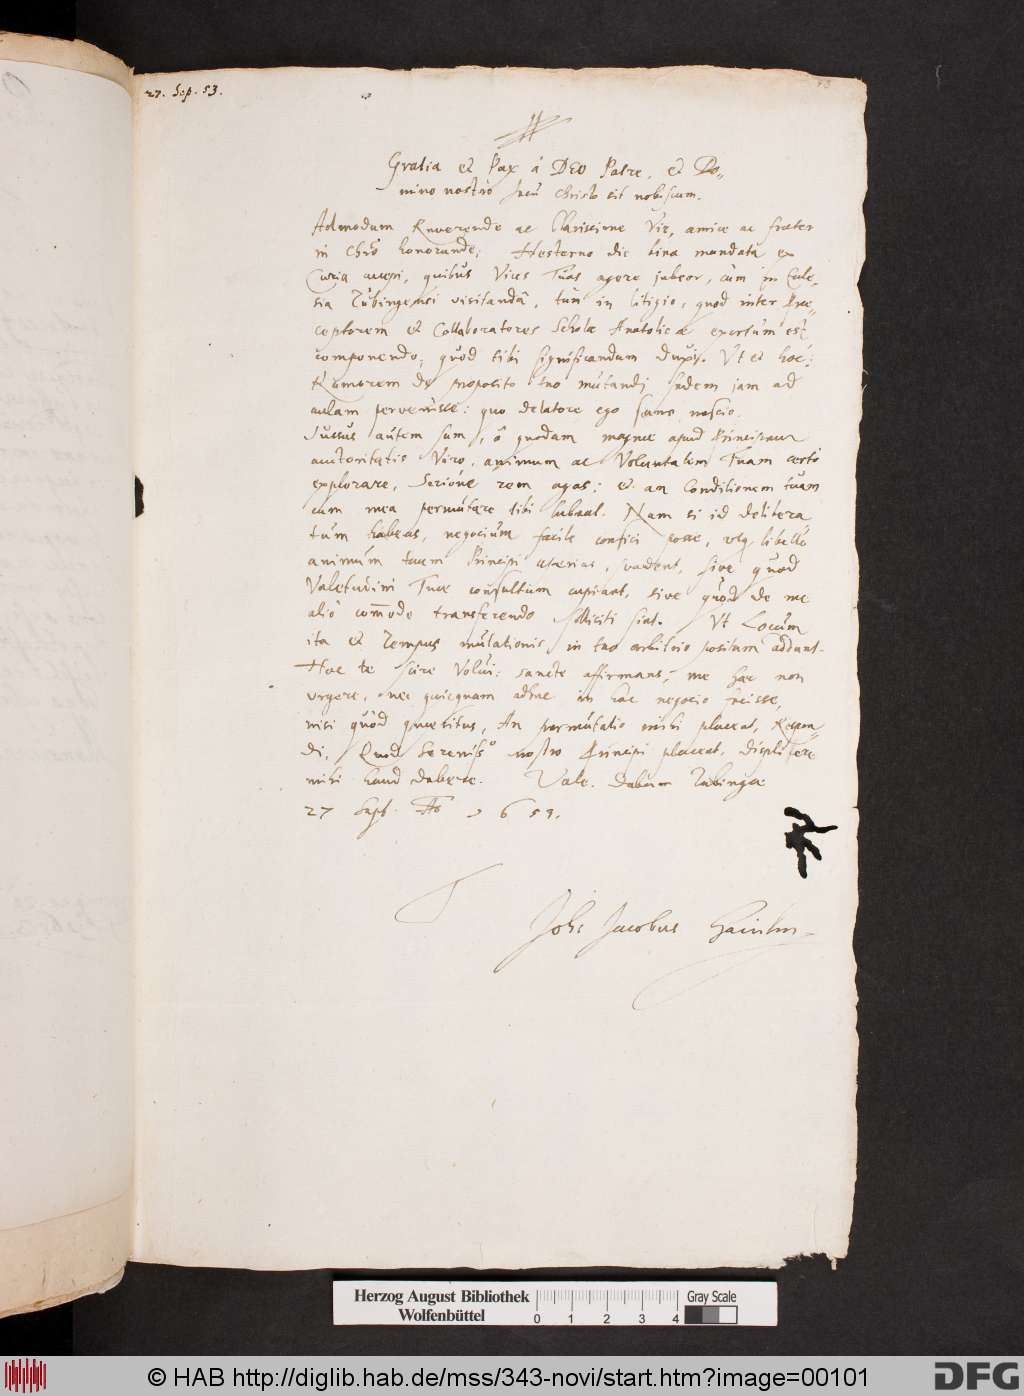 27. Sep. 53.
Gratia et Pax â DEO Patre, et Do„
mino nostro Jesu Christo sit nobiscum.
Admodum Reverende ac Clarissime Vir, amice ac frater
in Chro honorande; Hesterno die bina mandata ex
Curia accepi, quibus Vices Tuas agere jubeor, cùm in Eccle„
sia Tübingensi visitandâ, tùm in litigio, quod inter Prae„
ceptorem et Collaboratores Scholae Anatolicae exortum est
componendo, quod tibi significandum duxi. Ut et hoc:
Rumorem de proposito tuo mutandj sedem jam ad
aulam pervenisse: quo delatore ego sane nescio.
Jussus autem sum, â quodam magnae apud Principem
auctoritatis Viro, animum ac Voluntatem Tuam certò
explorare, Seriòne rem agas; et an Conditionem tuam
cum mea permutare tibi lubeat. Nam si id delibera
tum habeas, negocium facile confici posse, libello
animum tuum Principi aperias, suadent, sive quod
Valetudini Tuae consultum cupiant, sive quòd de me
aliò com̄ode transferendo solliciti sint. Ut Locum
ita et Tempus mutationis in tuo arbitrio positum addunt.
Hoc te scire Volui; sanctè affirmans, me haec non
urgere, nec quicquam adhuc in hac negocio fecisse,
nisi quòd quaesitus, An permutatio mihi placeat, Respon„
di, Quod Sereniss.o nostro Principi placeat, displicere
mihi haud debere. Vale. Dabam Tubingae
27 Sept. Ao 1653.
T
Johs Jacobus Hainlin
Herzog August Bibliothek
Wolfenbüttel
0 1 2 3 4
Gray Scale
© HAB http://diglib.hab.de/mss/343-novi/start.htm?image=00101
DFG